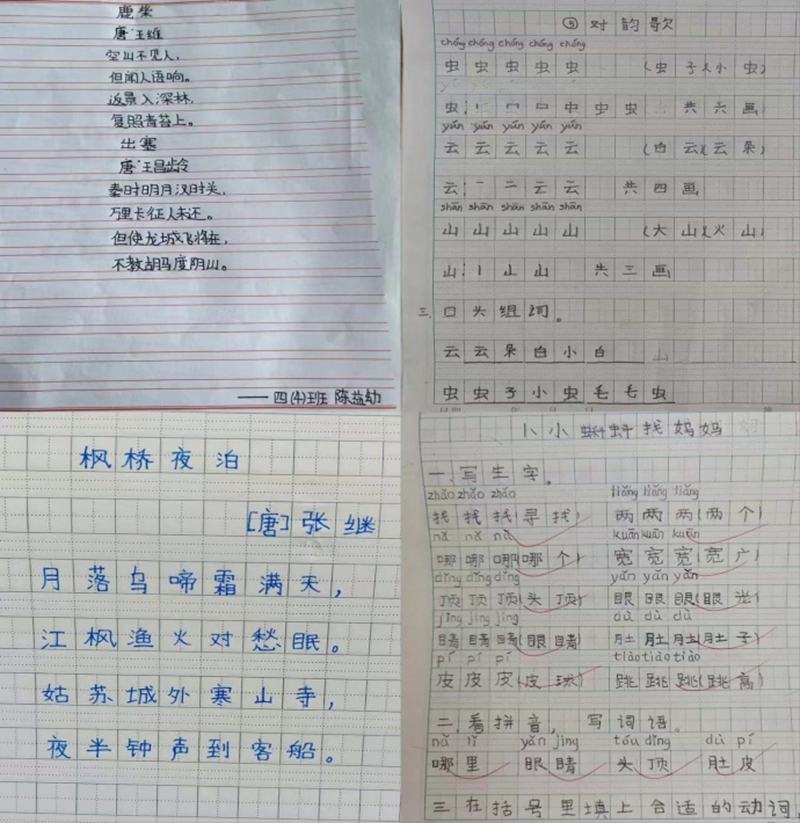 鹿柴
唐·王维
空山不见人,
但闻人语响。
返景入深林,
复照青苔上。
出塞
唐·王昌龄
秦时明月汉时关,
万里长征人未还。
但使龙城飞将在,
不教胡马度阴山。
——四(4)班 陈益幼
⑤对韵歌
chóng chóng chóng chóng chóng
虫虫虫虫虫 (虫子)(小虫)
虫:丨 冂 口 中 虫 虫 共六画
yún yún yún yún yún
云云云云云 (白云)(云朵)
云:一 二 云 云 共四画
shān shān shān shān shān
山山山山山 (大山)(火山)
山:丨 山 山 共三画
三.口头组词。
云 云朵 白 小白
虫 虫子 小虫 毛毛虫
枫桥夜泊
[唐]张继
月落乌啼霜满天,
江枫渔火对愁眠。
姑苏城外寒山寺,
夜半钟声到客船。
1小蝌蚪找妈妈
一、写生字。
zhǎo zhǎo zhǎo liǎng liǎng liǎng
找找找(寻找) 两两两(两个)
nǎ nǎ nǎ kuān kuān kuān
哪哪哪(哪个) 宽宽宽(宽广)
dǐng dǐng dǐng yǎn yǎn yǎn
顶顶顶(头顶) 眼眼眼(眼光)
jīng jīng jīng dù dù dù
睛睛睛(眼睛) 肚肚肚(肚子)
pí pí pí tiào tiào tiào
皮皮皮(皮球) 跳跳跳(跳高)
二、看拼音,写词语。
nǎ lǐ yǎn jing tóu dǐng dù pí
哪里 眼睛 头顶 肚皮
三在括号里填上合适的动词